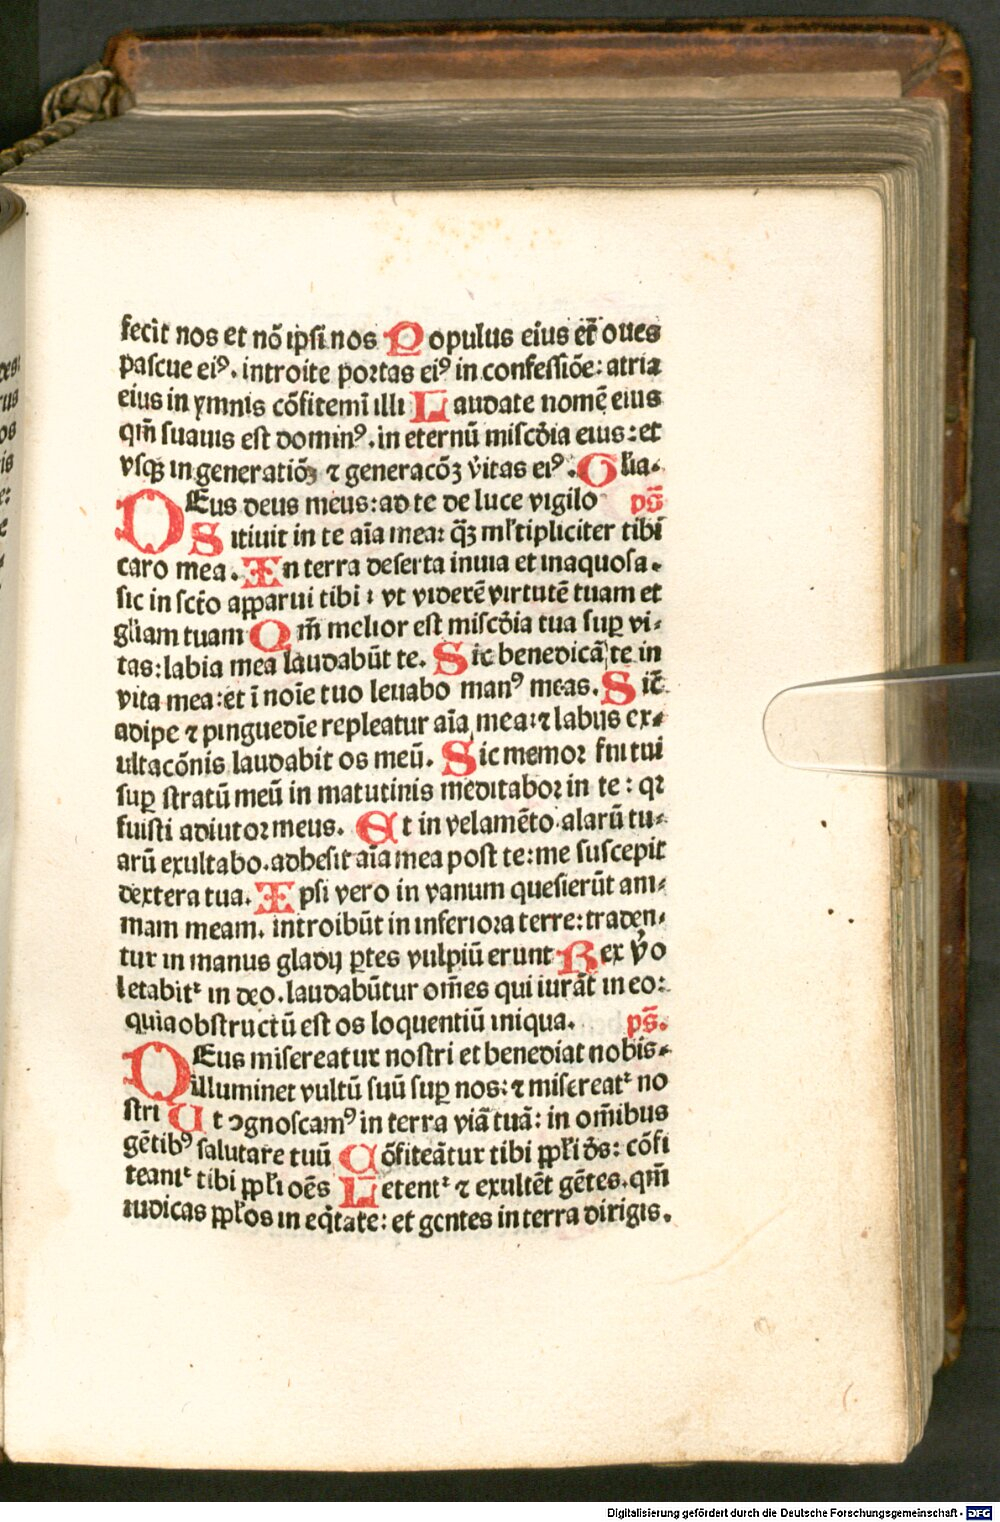 fecit nos et nō ipsi nos Populus eius et̄ oues
pascue eiꝰ. introite portas eiꝰ in confessiōe: atria
eius in ymnis cōfitemī illi Laudate nomē eius
qm̄ suauis est dominꝰ. in eternū miscd̄ia eius: et
vsqꝫ in generatiōꝫ ⁊ generacōꝫ v̄itas eiꝰ. Gl̄ia.
DEus deus meus: ad te de luce vigilo ps̄
Sitiuit in te aīa mea: q̄ꝫ ml̄tipliciter tibī
caro mea. In terra deserta inuia et inaquosa.
sic in sctō aꝑꝑarui tibi: vt viderē virtutē tuam et
gl̄iam tuam Qm̄ melior est miscd̄ia tua suꝑ vi⸗
tas: labia mea laudabūt te. Sic benedicā te in
vita mea: et ī noīe tuo leuabo manꝰ meas. Sic̄
adipe ⁊ pinguedīe repleatur aīa mea: ⁊ labijs ex⸗
ultacōnis laudabit os meū. Sic memor fui tui
suꝑ stratū meū in matutinis meditabor in te: qꝛ
fuisti adiutor meus. Et in velamēto alarū tu⸗
arū exultabo. adhesit aīa mea post te: me suscepit
dextera tua. Ipsi vero in vanum quesierūt ani⸗
mam meam. introibūt in inferiora terre: traden⸗
tur in manus gladij ꝑtes vulpiū erunt Rex v̄o
letabitᷣ in deo. laudabūtur om̄es qui iurāt in eo:
quia obstructū est os loquentiū iniqua. ps̄.
DEus misereatur nostri et benediat nobis⸗
illuminet vultū suū suꝑ nos: ⁊ misereatᷣ no
stri Ut ꝯgnoscamꝰ in terra viā tuā: in om̄ibus
gētibꝰ salutare tuū Cōfiteātur tibi ꝑꝑl̄i ds̄: cōfi
teantᷣ tibi ꝑꝑl̄i oēs Letentᷣ ⁊ exultēt gētes. qm̄
iudicas ꝑꝑl̄os in eq̄tate: et gentes in terra dirigis.
Digitalisierung gefördert durch die Deutsche Forschungsgemeinschaft - DFG